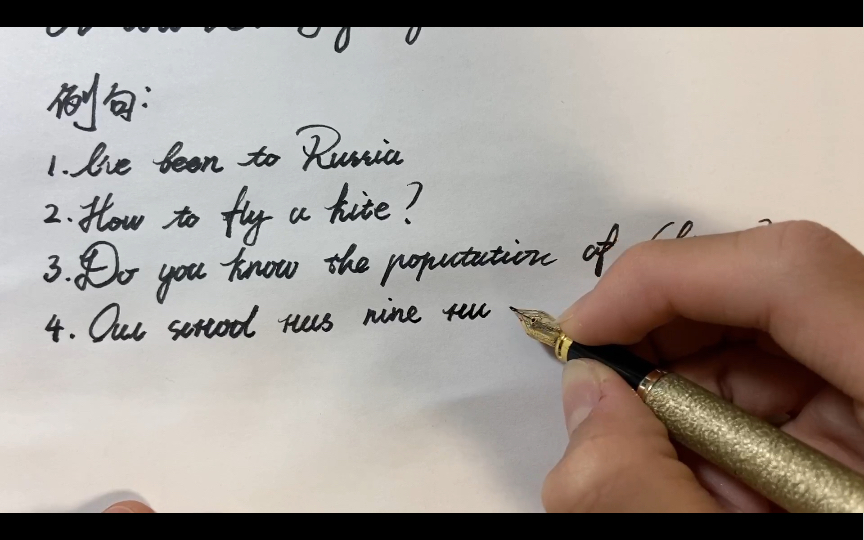 例句:
1. I've been to Russia
2. How to fly a kite?
3. Do you know the population of
4. Our school has nine